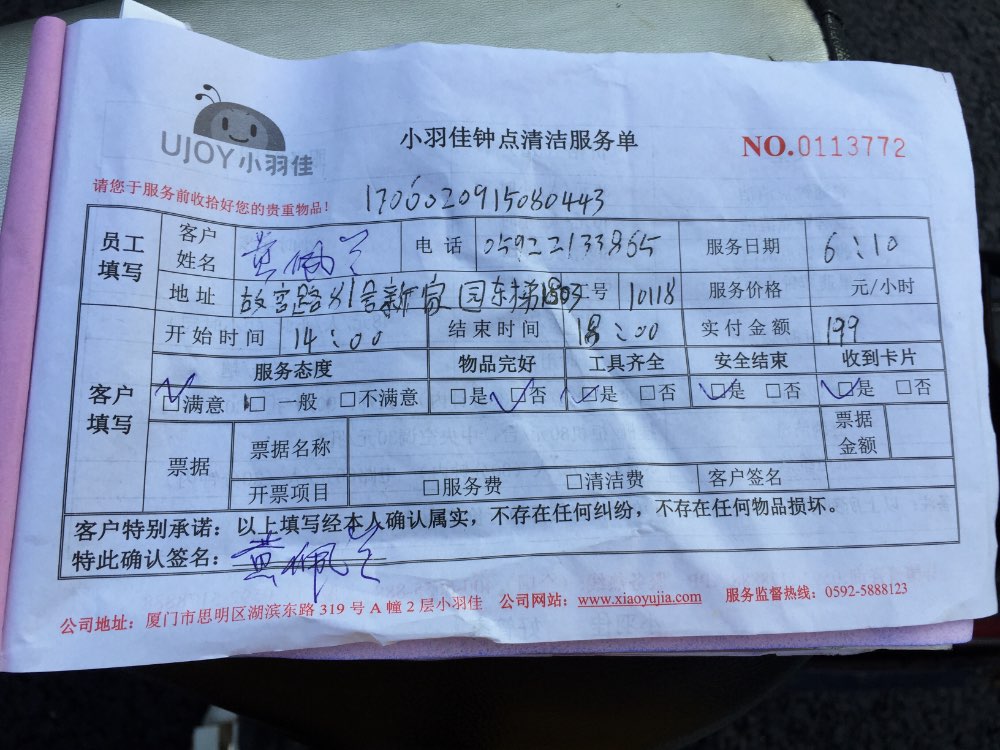 UJOY小羽佳
小羽佳钟点清洁服务单
NO.0113772
请您于服务前收拾好您的贵重物品!
1700020915080443
员工填写 客户姓名 黄佩兰 电话 05922133865 服务日期 6:10
地址 故宫路81号新家园东梯1803 工号 10118 服务价格 元/小时
客户填写 开始时间 14:00 结束时间 18:00 实付金额 199
服务态度 物品完好 工具齐全 安全结束 收到卡片
□满意 □一般 □不满意 □是 □否 □是 □否 □是 □否 □是 □否
票据 票据名称 票据金额
开票项目 □服务费 □清洁费 客户签名
客户特别承诺:以上填写经本人确认属实,不存在任何纠纷,不存在任何物品损坏。
特此确认签名:黄佩兰
公司地址:厦门市思明区湖滨东路 319 号 A 幢 2 层小羽佳 公司网站:www.xiaoyujia.com 服务监督热线:0592-5888123